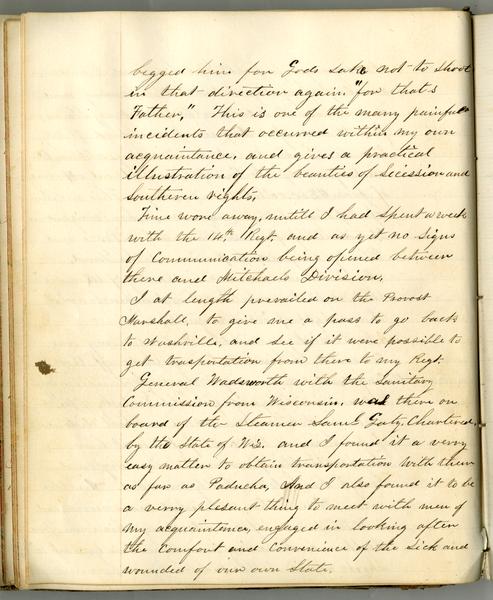 begged him for Gods sake not to shoot
in that direction again. "for thats
Father," This is one of the many painful
incidents that occurred within my own
acquaintance, and gives a practical
illustration of the beauties of Secession and
Southeren rights,
Time wore away, untill I had spent a week
with the 14th, Regt. and as yet no signs
of Communication being opened between
there and Mitchaels Division,
I at length prevailed on the Provost
Marshall, to give me a pass to go back
to Nashville, and see if it were possible to
get trasportation from there to my Regt.
General Wadsworth with the Sanitary
Commission from Wisconsin, was there on
board of the Steamer Saml Gaty, Chartered
by the State of Wis. and I found it a verry
easy matter to obtain transportation with them
as far as Paducha, And I also found it to be
a verry plesant thing to meet with men of
my acquaintance, engaged in looking after
the Comfort and Convenience of the Sick and
wounded of our own State.